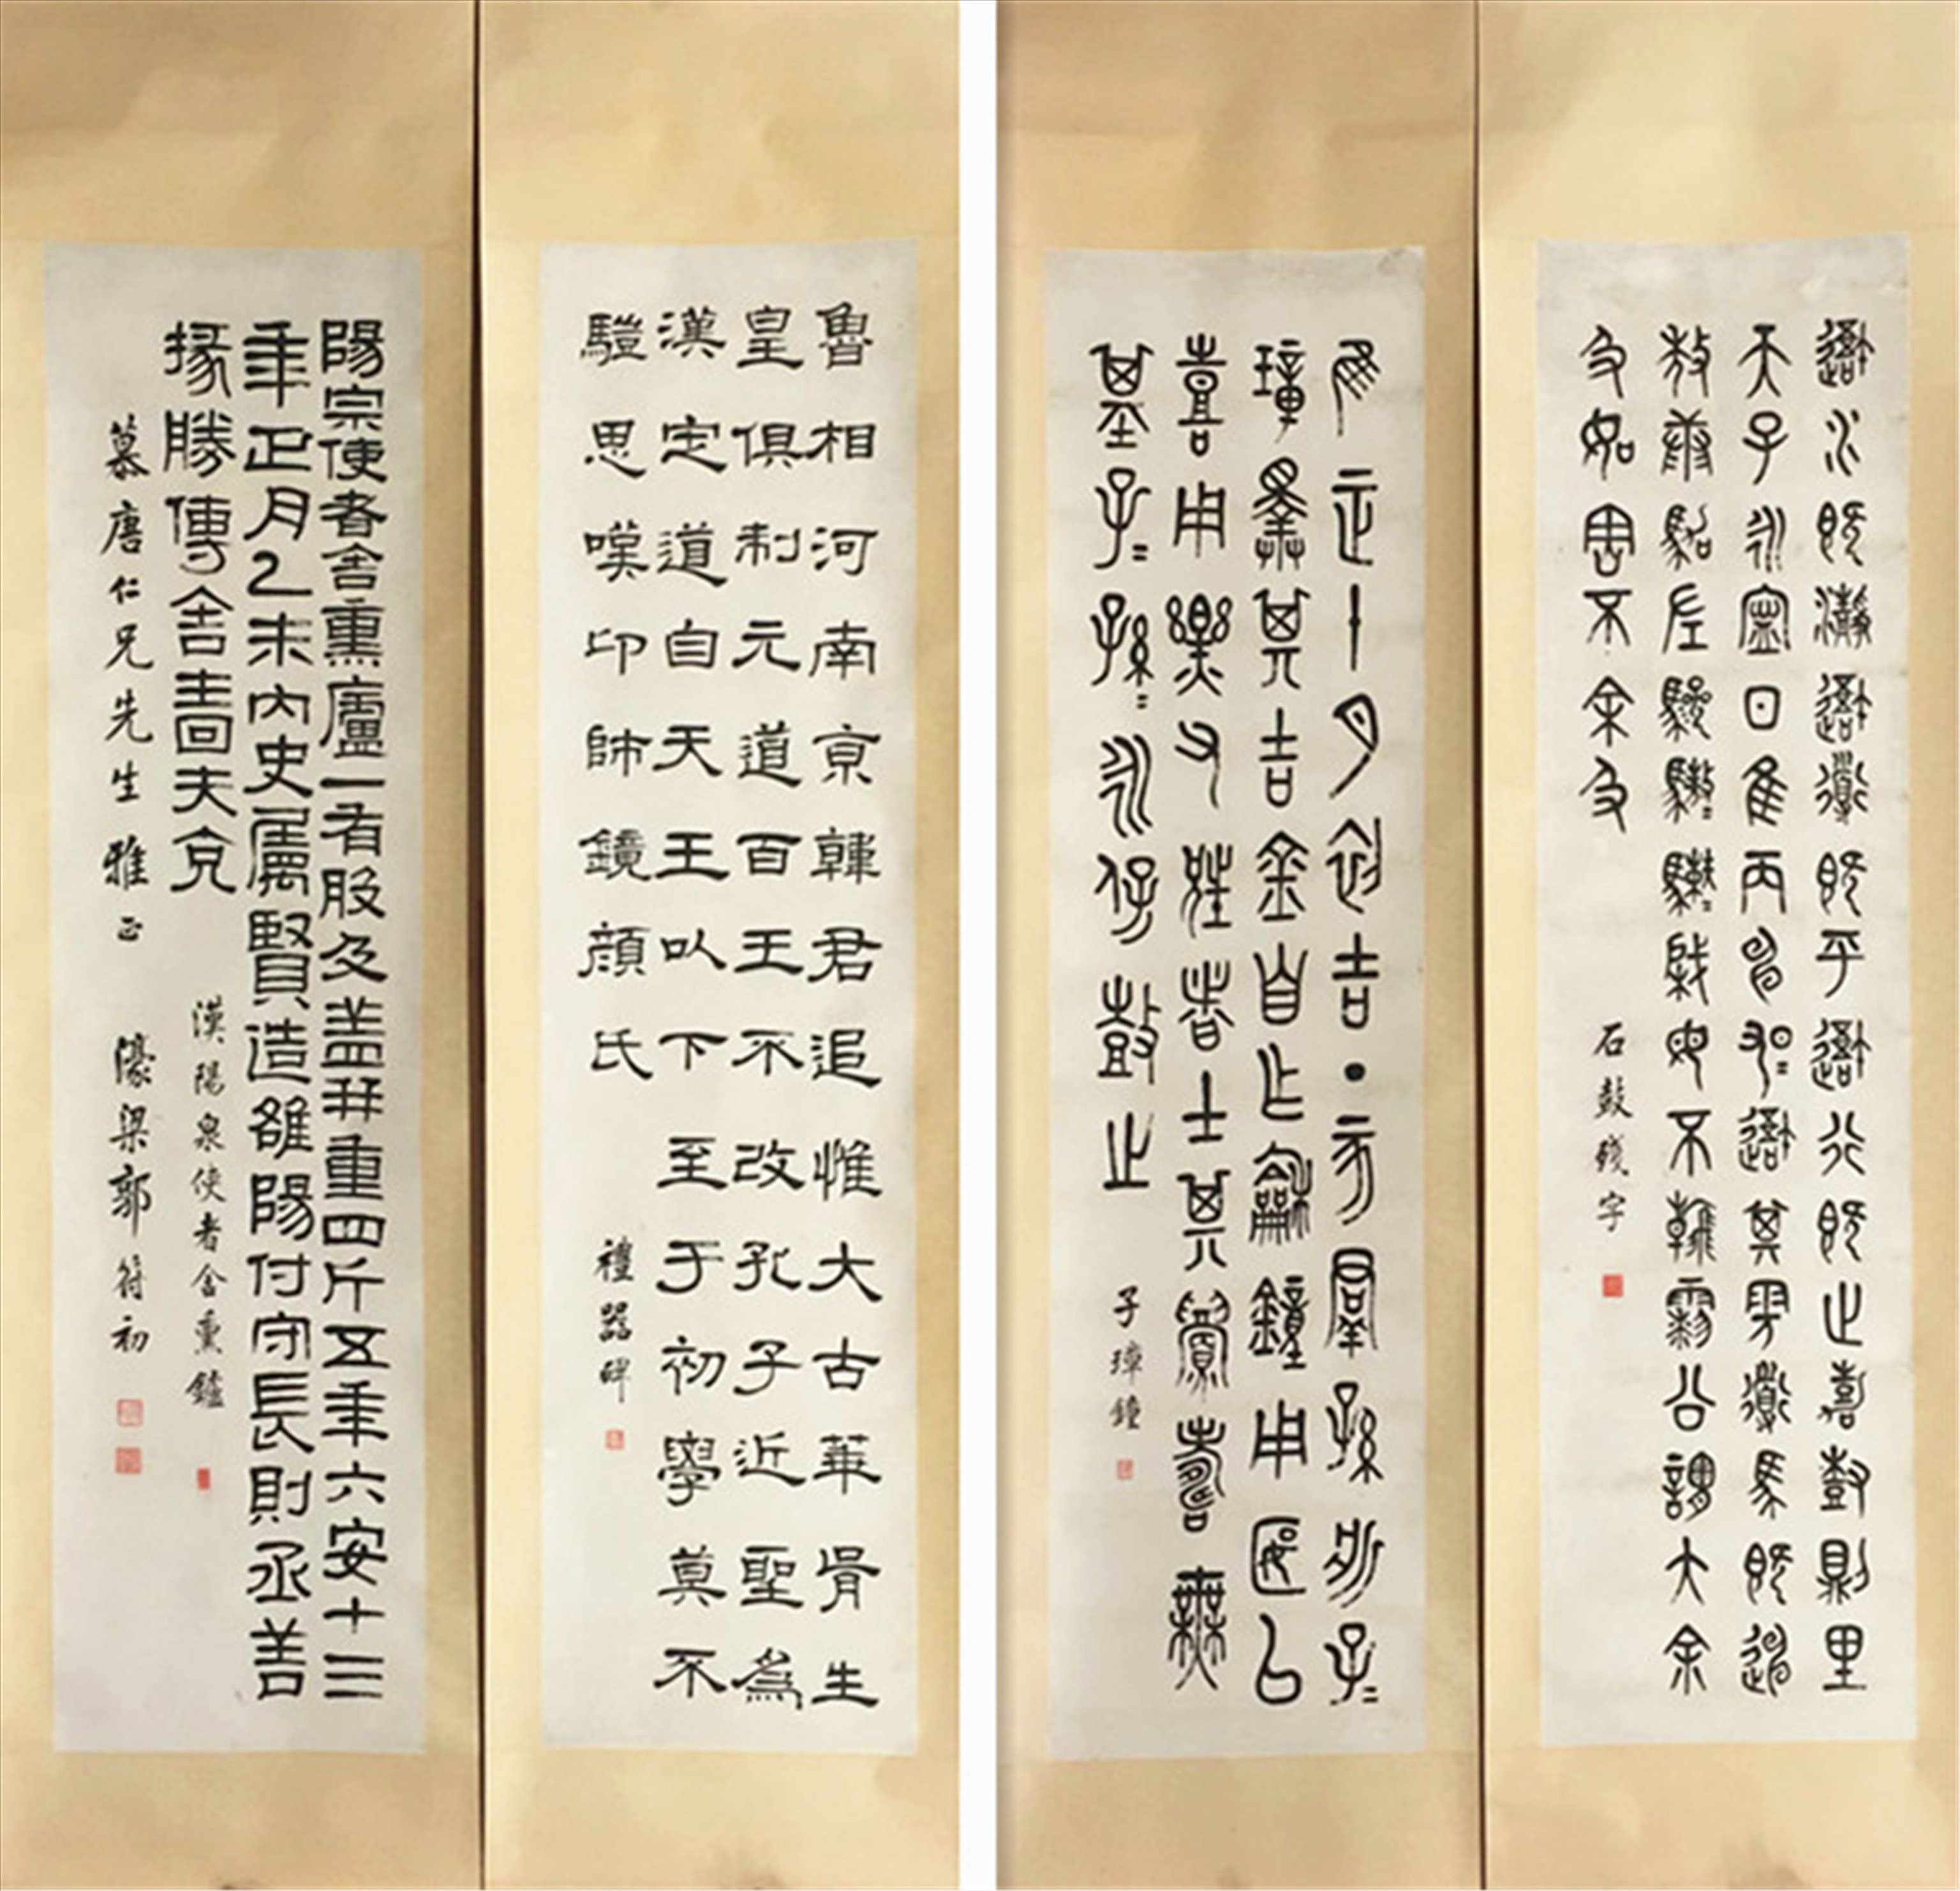 吾水既瀞吾道既平吾行既止嘉尌則里
天子永寍日隹丙申昱=吾其旁道馬既迪
敖康駕左驂
母不
公謂大余
及如害不余及
石鼓殘字
隹正十月初吉丁亥群孫斨子=
璋擇其吉金自乍龢鐘用匽㠯
喜用樂父兄者士其眉壽無
基子=孫=永保鼓之
子璋鐘
魯相河南京韓君追惟大古華胥生
皇俱制元道百王不改孔子近聖爲
漢定道自天王以下至于初學莫不
驥思嘆卬師鏡顏氏
禮器碑
陽泉使者舍熏廬一有般及蓋并重四斤五年六安十三
年正月乙未內史屬賢造雒陽付守長則丞善
掾勝傳舍嗇夫兗
漢陽泉使者舍熏鑪
慕唐仁兄先生雅正
濠梁郭符初